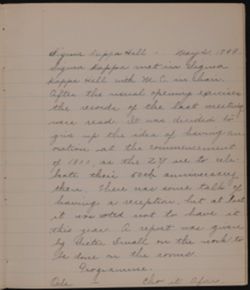 Sigma Kappa Hall - May 21. 1909.
Sigma Kappa met in Sigma
Kappa Hall with M.C. in chair.
After the usual opening exercises
the records of the last meeting
were read. It was decided to
give up the idea of having an
oration at the commencement
of 1910, as the ZY are to cele-
brate their 60th anniversary
then. There was some talk of
having a reception, but at last
it was voted not to have it
this year. A report was given
by Sister Small on the work to
be done in the rooms.
Programme.